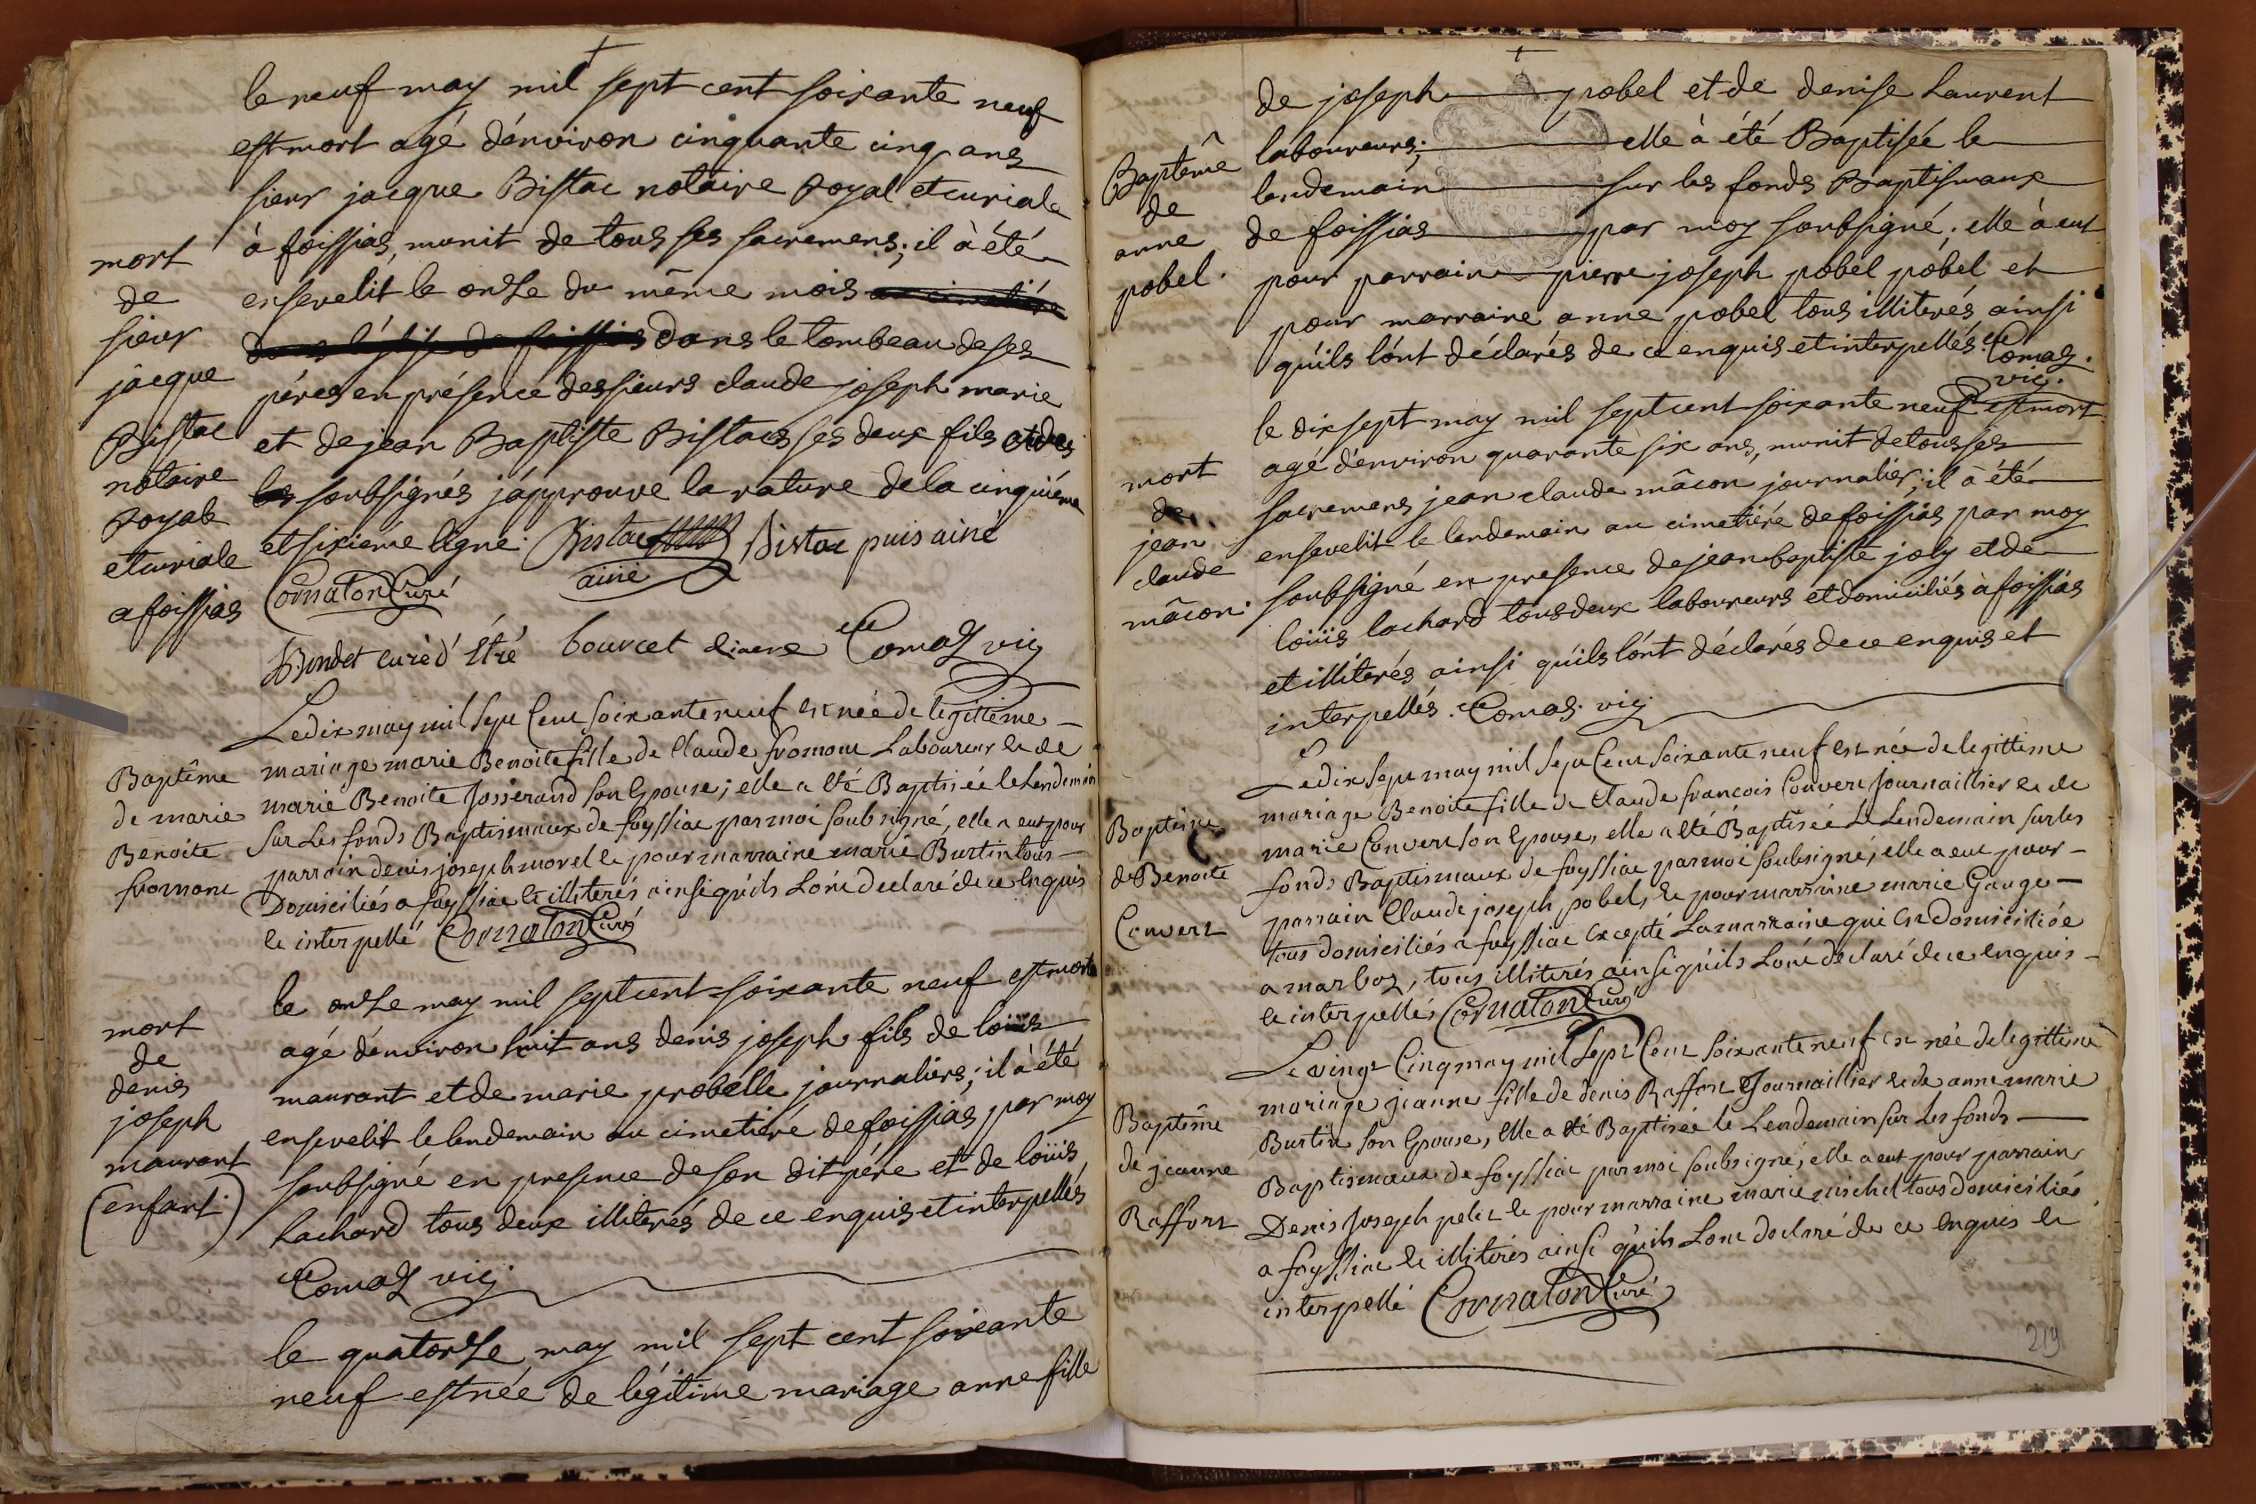 le neuf may mil sept cent soixante neuf
est mort agé d'énviron cinquante cinq ans
sieur jacque Bistac notaire Royal et curiale
à foissias, munit de tous ses sacremens; il à été
ensevelit le onse du même mois
dans le tombeau de ses
péres en présence des sieurs claude joseph marie
et de jean Baptiste Bistacs ses deux fils
soubsignés j'approuve la rature de la cinquiéme
et sixiéme ligne. Bistac Bistac puis ainé
ainé
Cornaton Curé
Bondet curé d'Étré bourcet diacre Comas vic
mort
de
sieur
jacque
Bistac
notaire
Royale
et curiale
a foissias
Le dix may mil sept Cent soixante neuf est née de legittime
mariage marie Benoite fille de Claude fromont Laboureur et de
marie Benoite Josserand son Epouse; elle a été Baptisée le Lendemin
sur Les fonds Baptismaux de foyssiac par moi soubsigné, elle a eut pour
parrain denis joseph morel et pour marraine marie Burtin tous
Domiciliés a foyssiac et illiterés ainsi qu'ils L'ont declaré de ce Enquis
et interpellé Cornaton Curé
Baptême
de marie
Benoite
fromont
le onse may mil sept cent soixante neuf est mort
agé d'énviron huit ans denis joseph fils de loüis
maurant et de marie probelle journaliers; il à été
ensevelit le lendemain au cimetiére de foissias par moy
soubsigné en presence de son dit pére et de loüis
Lachard tous deux illiterés de ce enquis et interpellés
Comas vic
mort
de
denis
joseph
maurant
(enfant)
le quatorse may mil sept cent soixante
neuf est née de légitime mariage anne fille
de joseph probel et de denise Laurent
laboureurs; elle à été Baptisée le
lendemain sur les fonds Baptismaux
de foissias par moy soubsigné; elle à eut
pour parrain pierre joseph pobel pobel et
pour marraine anne pobel tous illiterés ainsi
qu'ils l'ónt déclarés de ce enquis et interpellés. Comas.
vic.
Baptême
de
anne
pobel.
le dix sept may mil sept cent soixante neuf est mort
agé d'énviron quarante six ans, munit de tous ses
sacremens jean claude mâcon journalier; il à été
ensevelit le lendemain au cimetiére de foissias par moy
soubsigné en presence de jean baptiste joly et de
loüis lachard tous deux laboureurs et domiciliés à foissias
et illiterés ainsi qu'ils l'ónt déclarés de ce enquis et
interpellés. Comas. vic
mort
de
jean
claude
mâcon.
Le dix sept may mil sept Cent soixante neuf est née de legittime
mariage Benoite fille de Claude francois Convert Journaillier et de
marie Convert son Epouse, elle a été Baptisée Le Lendemain sur les
fonds Baptismaux de foyssiac par moi soubsigné, elle a eut pour
parrain Claude joseph pobel, et pour marraine marie Gauge
tous domiciliés a foyssiac Excepté La marraine qui Est domiciliée
a marboz, tous illiterés ainsi qu'ils L'ont declaré de ce Enquis
et interpellés Cornaton Curé
Baptême
de Benoite
Convert
Le vingt Cinq may mil sept Cent soixante neuf est née de legittime
mariage jeanne fille de denis Raffort Journaillier et de anne marie
Burtin son Epouse, Elle a été Baptisée le Lendemain sur Les fonds
Baptismaux de foyssiac par moi soubsigné, elle a eut pour parrain
Denis Joseph petit et pour marraine marie michel tous domiciliés
a foyssiac et illiterés ainsi qu'ils L'ont declaré de ce Enquis et
interpellé Cornaton Curé
Baptême
de jeanne
Raffort
219